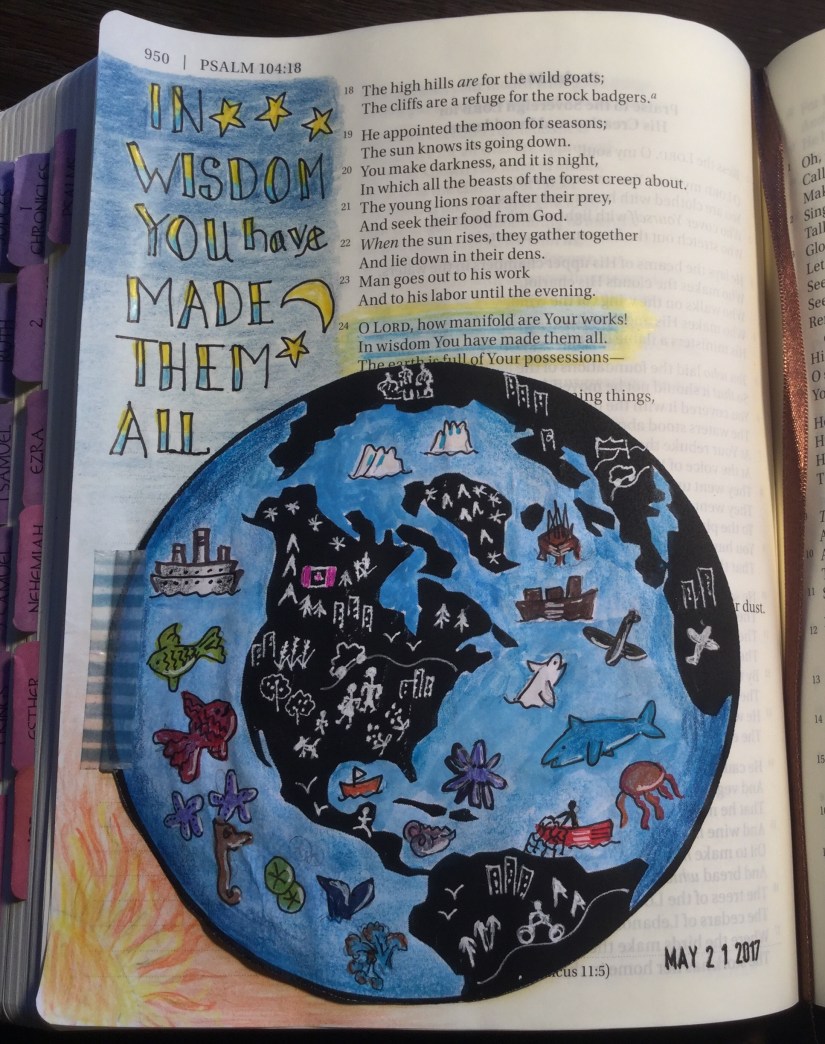 950 | PSALM 104:18
IN
WISDOM
YOU have
MADE
THEM
ALL
18 The high hills are for the wild goats;
The cliffs are a refuge for the rock badgers.a
19 He appointed the moon for seasons;
The sun knows its going down.
20 You make darkness, and it is night,
In which all the beasts of the forest creep about.
21 The young lions roar after their prey,
And seek their food from God.
22 When the sun rises, they gather together
And lie down in their dens.
23 Man goes out to his work
And to his labor until the evening.
24 O LORD, how manifold are Your works!
In wisdom You have made them all.
The earth is full of Your possessions—
things,
r dust.
icus 11:5)
MAY 21 2017
CHRONICLES
2
EZRA
NEHEMIAH
ESTHER
SAMUEL
Oh,
Call
Mak
Sing
Talk
Glo
Let
See
See
Re
12
13
14
15